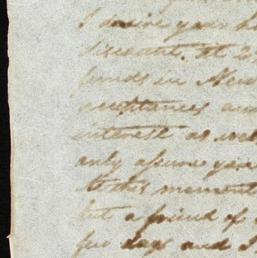 I desire you h
discount. At 2
funds in New
acceptances an
interest as wel
only assure you
to this moment
but a friend of
few days and I